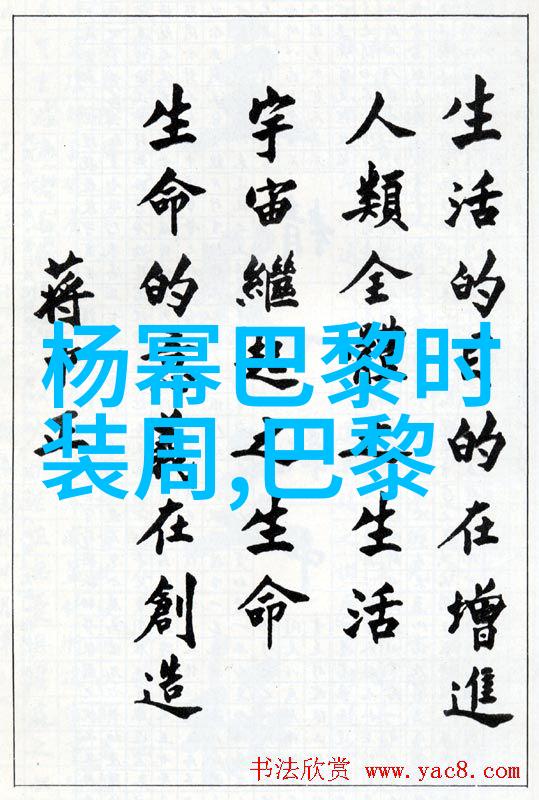 生活的目的在增進
人類全體之生活
宇宙繼起之生命
生命的意義在創造
蔣
杨幂巴黎时
装周,巴黎
书法欣赏 www.yac8.com